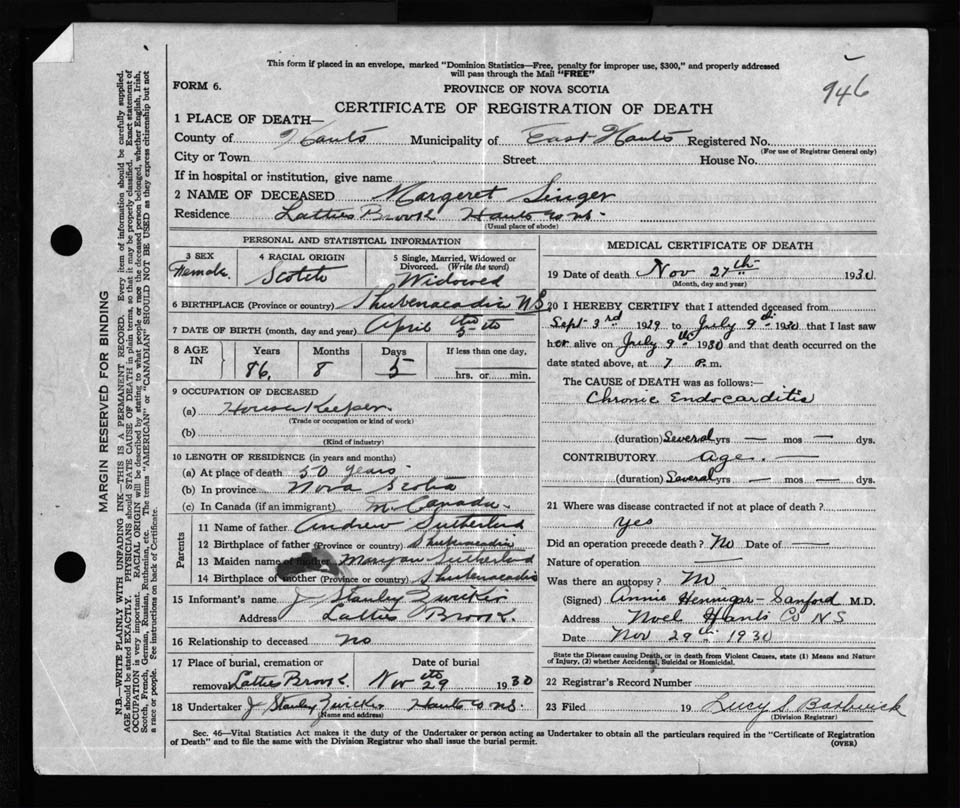 This form if placed in an envelope, marked "Dominion Statistics—Free, penalty for improper use, $300," and properly addressed
will pass through the Mail "FREE"
946
FORM 6.
PROVINCE OF NOVA SCOTIA
CERTIFICATE OF REGISTRATION OF DEATH
1 PLACE OF DEATH—
County of Hants Municipality of East Hants Registered No.
(For use of Registrar General only)
City or Town Street House No.
If in hospital or institution, give name
2 NAME OF DECEASED Margeret Singer
Residence Latties Brook Hants Co NS.
(Usual place of abode)
PERSONAL AND STATISTICAL INFORMATION
3 SEX Female
4 RACIAL ORIGIN Scotch
5 Single, Married, Widowed or Divorced. (Write the word) Widowed
6 BIRTHPLACE (Province or country) Shubenacadie NS
7 DATE OF BIRTH (month, day and year) April 5th
8 AGE IN Years 86 Months 8 Days 5 If less than one day, hrs. or min.
9 OCCUPATION OF DECEASED
(a) House Keeper
(Trade or occupation or kind of work)
(b)
(Kind of industry)
10 LENGTH OF RESIDENCE (in years and months)
(a) At place of death 50 years
(b) In province Nova Scotia
(c) In Canada (if an immigrant) Canada
Parents
11 Name of father Andrew Sutherland
12 Birthplace of father (Province or country) Shubenacadie
13 Maiden name of mother Sutherland
14 Birthplace of mother (Province or country) Shubenacadie
15 Informant's name J Stanley Zwicker
Address Latties Brook.
16 Relationship to deceased No
17 Place of burial, cremation or removal Latties Brook. Date of burial Nov 29th 1930
18 Undertaker J Stanley Zwicker Hants Co NS.
(Name and address)
MEDICAL CERTIFICATE OF DEATH
19 Date of death Nov 27th 1930
(Month, day and year)
20 I HEREBY CERTIFY that I attended deceased from
Sept 3rd 1929 to July 9th 1930 that I last saw
her alive on July 9th 1930 and that death occurred on the
date stated above, at 7 P. m.
The CAUSE of DEATH was as follows:—
Chronic Endocarditis
(duration) Several yrs — mos — dys.
CONTRIBUTORY age. —
(duration) Several yrs — mos — dys.
21 Where was disease contracted if not at place of death?
Yes
Did an operation precede death? No Date of —
Nature of operation —
Was there an autopsy? No
(Signed) Annie Hennigar-Sanford M.D.
Address Noel Hants Co NS
Date Nov 29th 1930
State the Disease causing Death, or in death from Violent Causes, state (1) Means and Nature
of Injury, (2) whether Accidental, Suicidal or Homicidal.
22 Registrar's Record Number
23 Filed 19 Lucy S.
(Division Registrar)
Sec. 46—Vital Statistics Act makes it the duty of the Undertaker or person acting as Undertaker to obtain all the particulars required in the "Certificate of Registration
of Death" and to file the same with the Division Registrar who shall issue the burial permit.
(OVER)
MARGIN RESERVED FOR BINDING
N.B.—WRITE PLAINLY WITH UNFADING INK—THIS IS A PERMANENT RECORD. Every item of information should be carefully supplied.
AGE should be stated EXACTLY. PHYSICIANS should STATE CAUSE OF DEATH in plain terms, so that it may be properly classified. Exact statement of
OCCUPATION is very important. RACIAL ORIGIN will be described by stating to what people or race the deceased person belonged, whether English, Irish,
Scotch, French, German, Russian, Ruthenian, etc. The terms "AMERICAN" or "CANADIAN" SHOULD NOT BE USED as they express citizenship but not
a race or people. See instructions on back of Certificate.